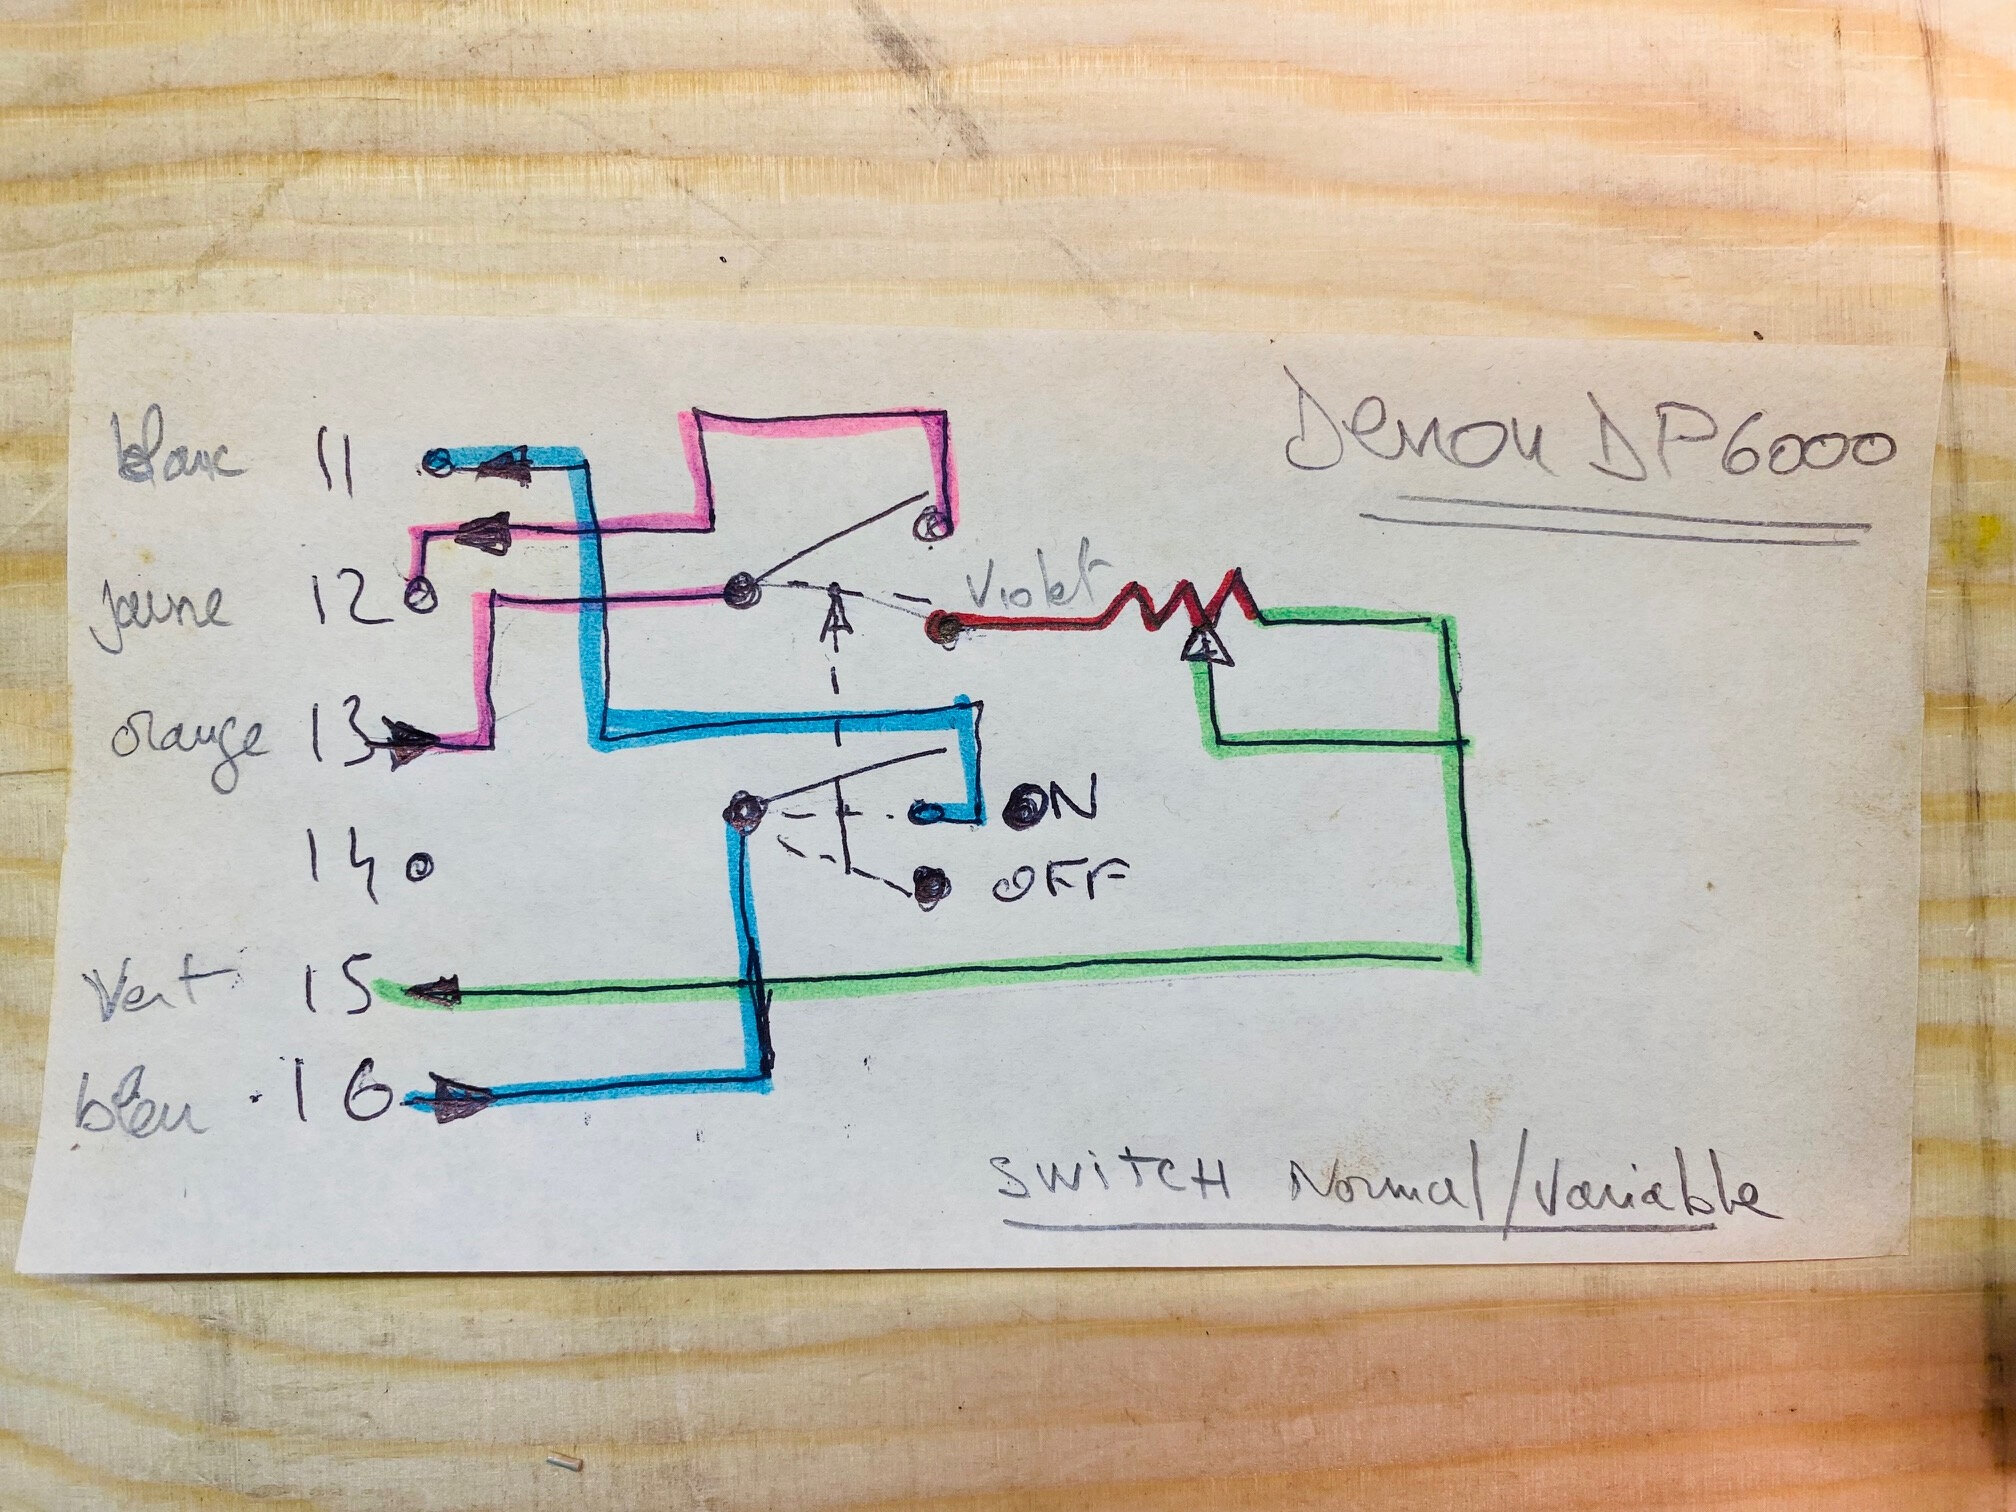 Denon DP6000
blanc 11
jaune 12
Violet
orange 13
ON
14
OFF
Vert 15
bleu 16
SWITCH Normal/Variable